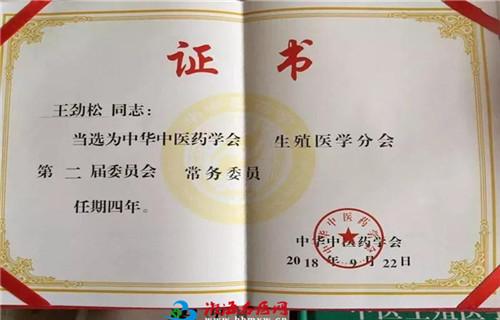 证书
王劲松 同志：
当选为中华中医药学会 生殖医学分会
第 二 届委员会 常务委员
任期四年。
中华中医药学会
中华中医药学会
2018 年 9 月 22日